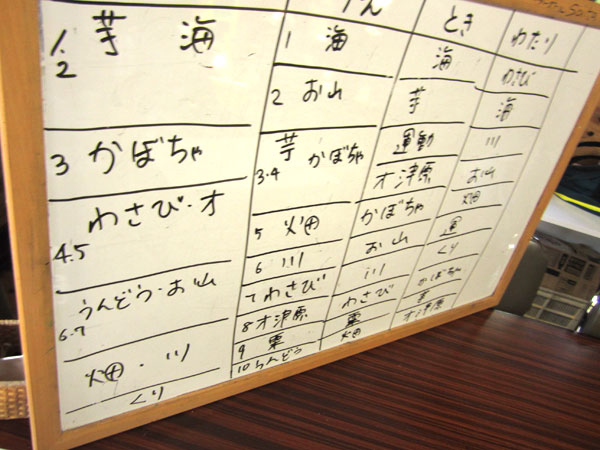 とき
わたり
1. 芋 海
2
3 かぼちゃ
わさび・オ
4.5
うんどう・お山
6.7
畑・川
くり
1 海
2 お山
芋 かぼちゃ
3.4
5 畑
6 川
7 わさび
8 オ津原
9 栗
10 うんどう
海
芋
運動
オ津原
かぼちゃ
お山
川
わさび
栗
畑
わさび
海
川
お山
畑
運
くり
かぼちゃ
芋
オ津原